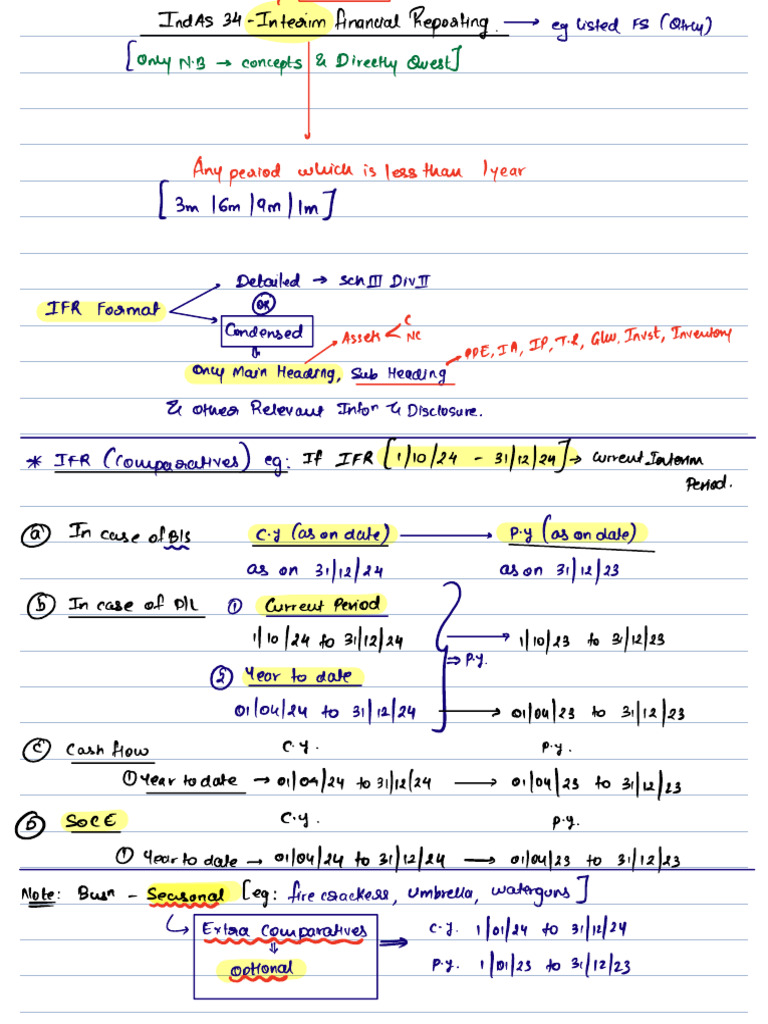 IndAS 34 - Interim Financial Reporting. → eg Listed FS (Qtrly)
[Only N.B → concepts & Directly Quest]
Any period which is less than 1 year
[3m | 6m | 9m | 1m]
Detailed → Sch III Div II
IFR Format
OR
Condensed
Assets < C
NC
PPE, IA, IP, T.R, G/w, Invst, Inventory
Only Main Heading, Sub Heading
& other Relevant Infor & Disclosure.
* IFR (Comparatives) eg: If IFR [1/10/24 - 31/12/24] → Current Interim
Period.
(a) In case of B/S C.y (as on date) → P.y (as on date)
as on 31/12/24 as on 31/12/23
(b) In case of P/L ① Current Period
1/10/24 to 31/12/24 → 1/10/23 to 31/12/23
⇒ P.y.
② Year to date
01/04/24 to 31/12/24 → 01/04/23 to 31/12/23
(c) Cash flow C.y. P.y.
① Year to date → 01/04/24 to 31/12/24 → 01/04/23 to 31/12/23
(D) SOCE C.y. P.y.
① Year to date → 01/04/24 to 31/12/24 → 01/04/23 to 31/12/23
Note: Busn - Seasonal [eg: fire crackers, umbrella, waterguns]
Extra Comparatives ⇒ C.y. 1/01/24 to 31/12/24
⇓
Optional P.y. 1/01/23 to 31/12/23